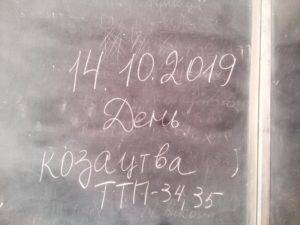 14.10.2019
День
козацтва
ТТП-34,35